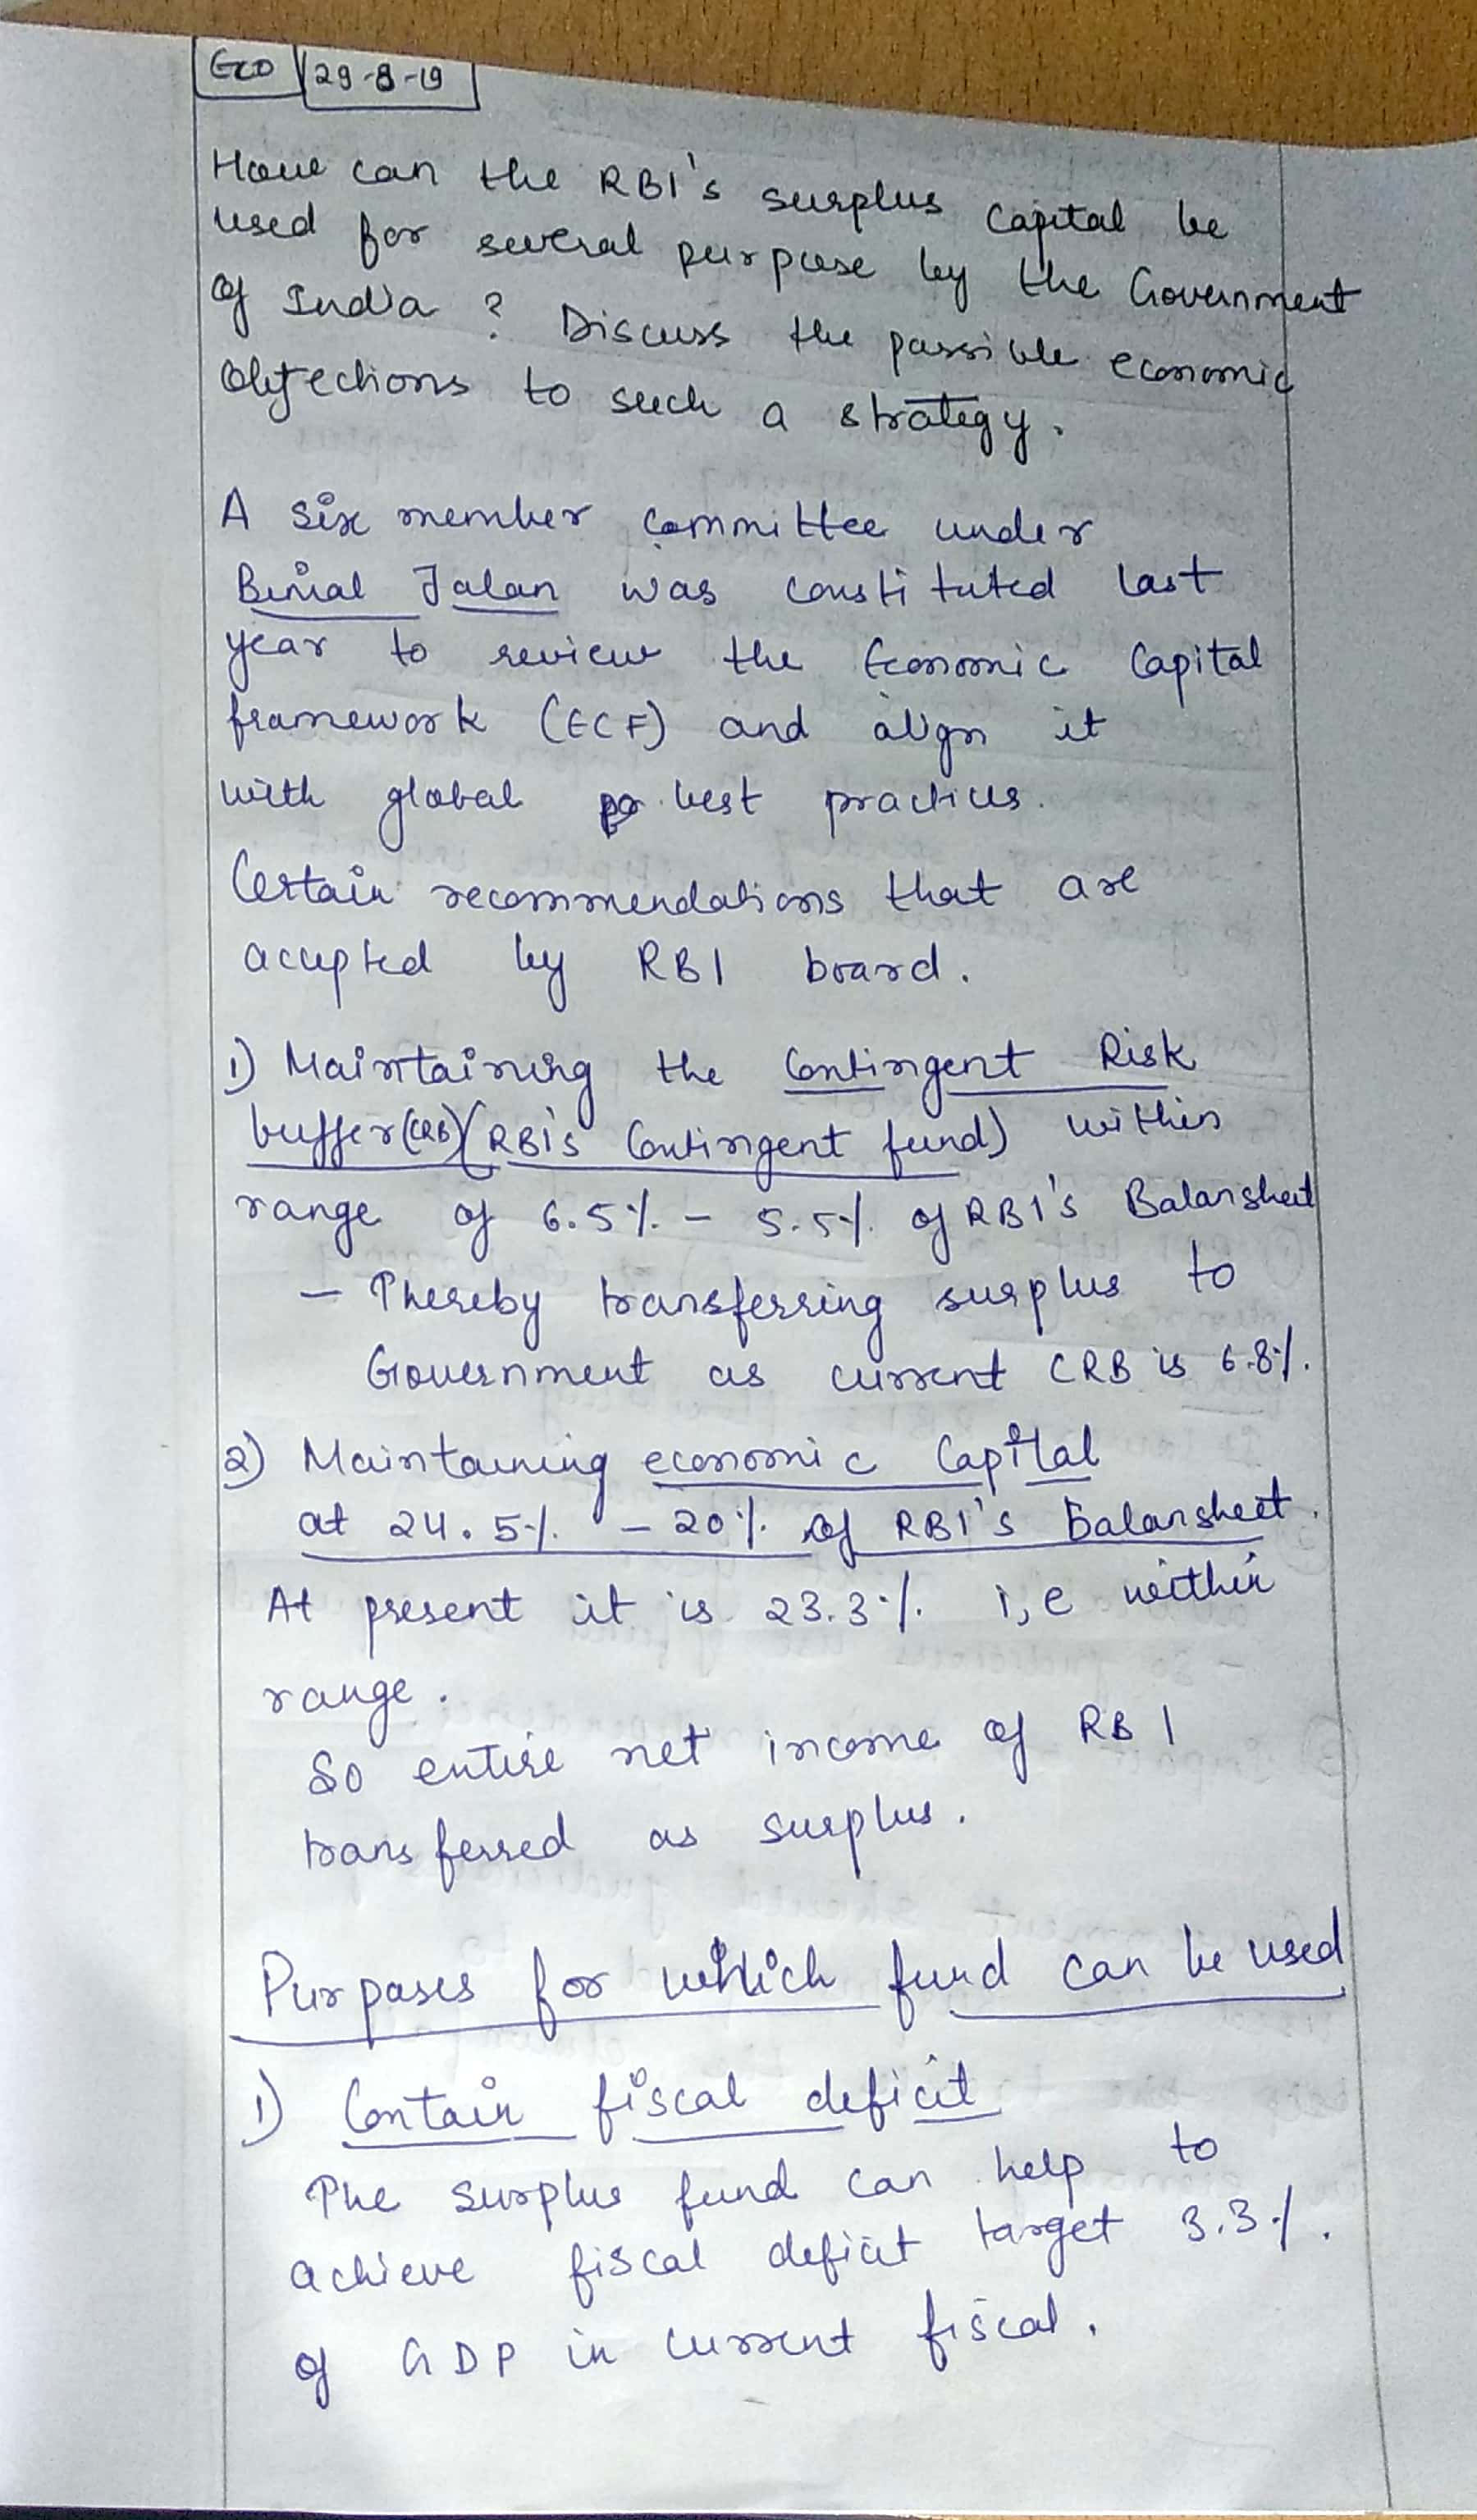 ECO 29-8-19
How can the RBI's surplus capital be
used for several purpose by the Government
of India ? Discuss the possible economic
objections to such a strategy.
A six member committee under
Bimal Jalan was constituted last
year to review the Economic Capital
framework (ECF) and align it
with global best practices.
Certain recommendations that are
accepted by RBI board.
1) Maintaining the Contingent Risk
buffer (CRB) (RBI's Contingent fund) within
range of 6.5% - 5.5% of RBI's Balansheet
- Thereby transferring surplus to
Government as current CRB is 6.8%.
2) Maintaining economic Capital
at 24.5% - 20% of RBI's balansheet.
At present it is 23.3% i,e within
range.
So entire net income of RBI
transferred as surplus.
Purposes for which fund can be used
1) Contain fiscal deficit
The surplus fund can help to
achieve fiscal deficit target 3.3%.
of GDP in current fiscal.